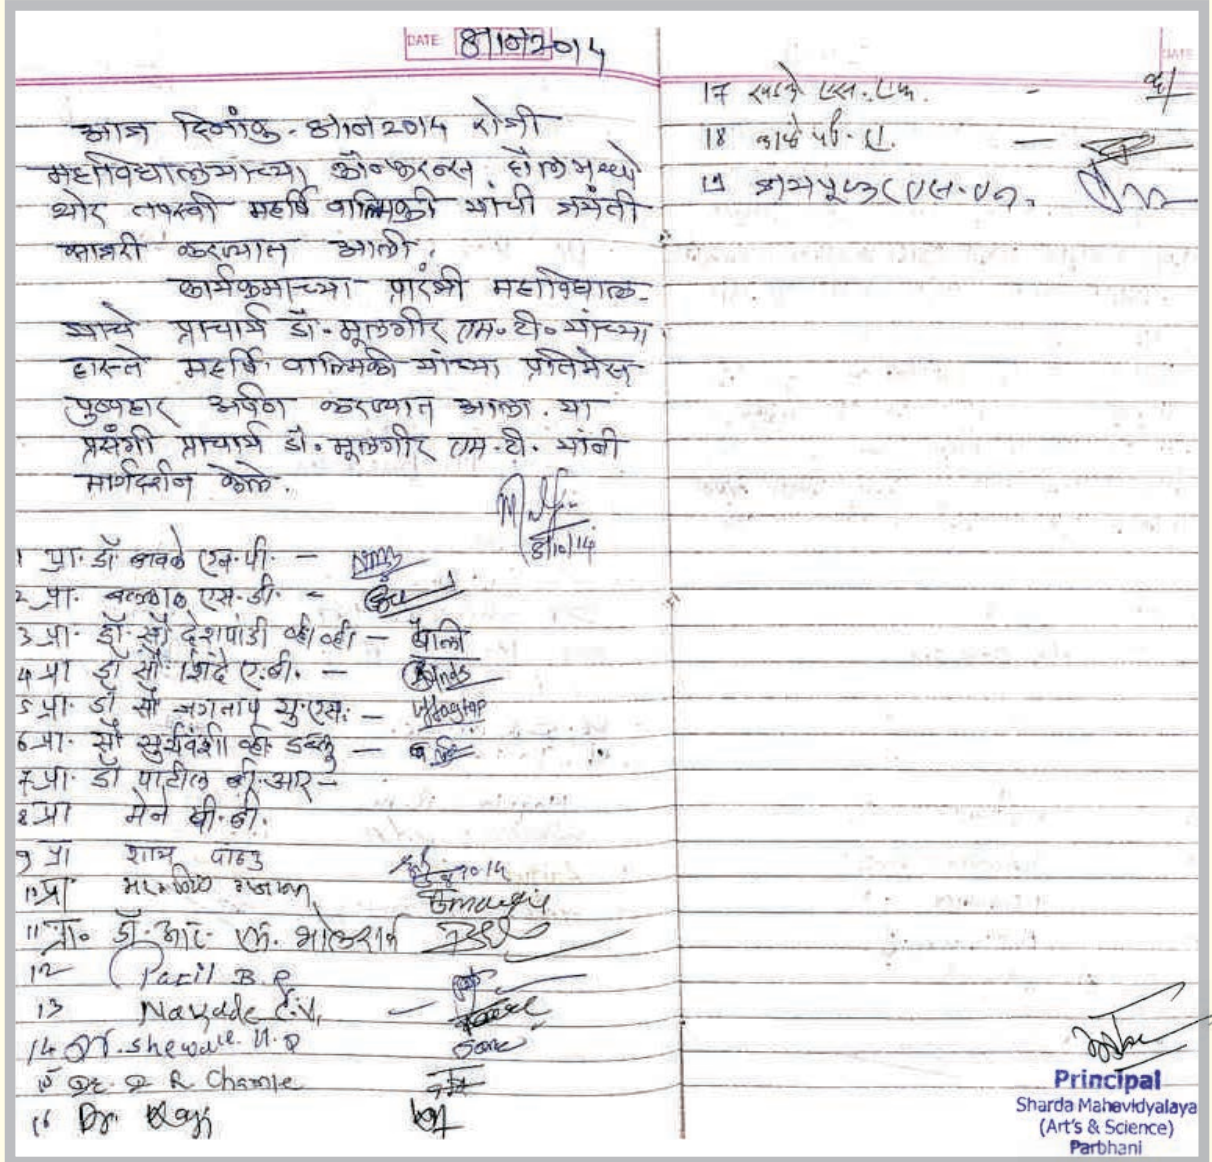 DATE 8/10/2014
आज दिनांक. 8/10/2014 रोजी
महाविद्यालयाच्या कॉन्फरन्स हॉलमध्ये
थोर तपस्वी महर्षि वाल्मिकी यांची जयंती
साजरी करण्यात आली.
कार्यक्रमाच्या प्रारंभी महाविद्याल-
याचे प्राचार्य डॉ. मूलगीर एम. टी. यांच्या
हास्ते महर्षि वाल्मिकी यांच्या प्रतिमेस
पुष्पहार अर्पण करण्यात आला. या
प्रसंगी प्राचार्य डॉ. मूलगीर एम. टी. यांनी
मार्गदर्शन केले.
8/10/14
1 प्रा. डॉ. एन. पी. -
2 प्रा. एस. डी. -
3 प्रा. डॉ. सौ. देशपांडे व्ही. व्ही. -
4 प्रा डॉ सौ. शिंदे ए. बी. -
5 प्रा. डॉ सौ जगताप यु. एस. - Jagtap
6 प्रा. सौ सुर्यवंशी व्ही. डब्लु -
7 प्रा. डॉ पाटील बी. आर -
8 प्रा माने बी. बी.
9 प्रा
10 प्रा
11 प्रा. डॉ. आर. के. भालेराव
12 Patil B. R
13 Navgade C. V. -
14 Dr. Shewale. U. D
15 Dr. D R Chamle
16 Dr.
17 एस. एफ. -
18 काळे पी. ए. -
19 जायपूरकर एस. एन.
Principal
Sharda Mahavidyalaya
(Art's & Science)
Parbhani